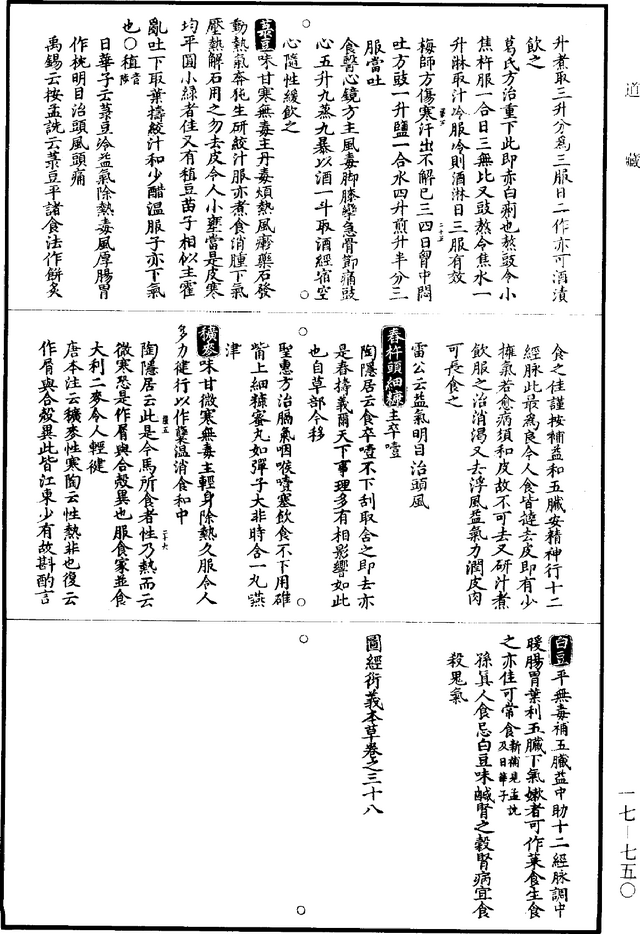 道藏
升煮取三升分爲三服日二作亦可酒漬
飲之
葛氏方治重下此即赤白痢也熬豉令小
焦杵服一合日三無比又豉熬令焦水一
升淋取汁冷服冷則酒淋日三服有效
梅師方傷寒汗出不解已三四日胷中悶
吐方豉一升鹽一合水四升煎升半分三
服當吐
食醫心鏡方主風毒脚膝攣急骨節痛豉
心五升九蒸九暴以酒一斗取酒經宿空
心隨性緩飲之
菉豆味甘寒無毒主丹毒煩熱風瘮藥石發
動熱氣奔㹠生研絞汁服亦煮食消腫下氣
壓熱解石用之勿去皮令人小壅當是皮寒
均平圓小綠者佳又有稙豆苗子相似主霍
亂吐下取葉擣絞汁和少醋溫服子亦下氣
也○稙音陟
日華子云菉豆冷益氣除熱毒風厚腸胃
作枕明目治頭風頭痛
禹錫云按孟詵云菉豆平諸食法作餅炙
食之佳謹按補益和五臟安精神行十二
經脉此最爲良今人食皆撻去皮即有少
擁氣若愈病須和皮故不可去又研汁煮
飲服之治消渴又去浮風益氣力潤皮肉
可長食之
雷公云益氣明目治頭風
舂杵頭細糠主卒噎
陶隱居云食卒噎不下刮取含之即去亦
是舂擣義爾天下事理多有相影響如此
也自草部今移
聖惠方治膈氣咽喉噎塞飲食不下用碓
觜上細糠蜜丸如彈子大非時含一丸嚥
津
穬麥味甘微寒無毒主輕身除熱久服令人
多力健行以作糵溫消食和中
陶隱居云此是今馬所食者性乃熱而云
微寒恐是作屑與合殼異也服食家並食
大利二麥令人輕健
唐本注云穬麥性寒陶云性熱非也復云
作屑與合殼異此皆江東少有故斟酌言
白豆平無毒補五臟益中助十二經脉調中
暖腸胃葉利五臟下氣嫩者可作菜食生食
之亦佳可常食新補見孟詵及日華子
孫真人食忌白豆味鹹腎之穀腎病宜食
殺鬼氣
圖經衍義本草卷之三十八
一七—七五〇